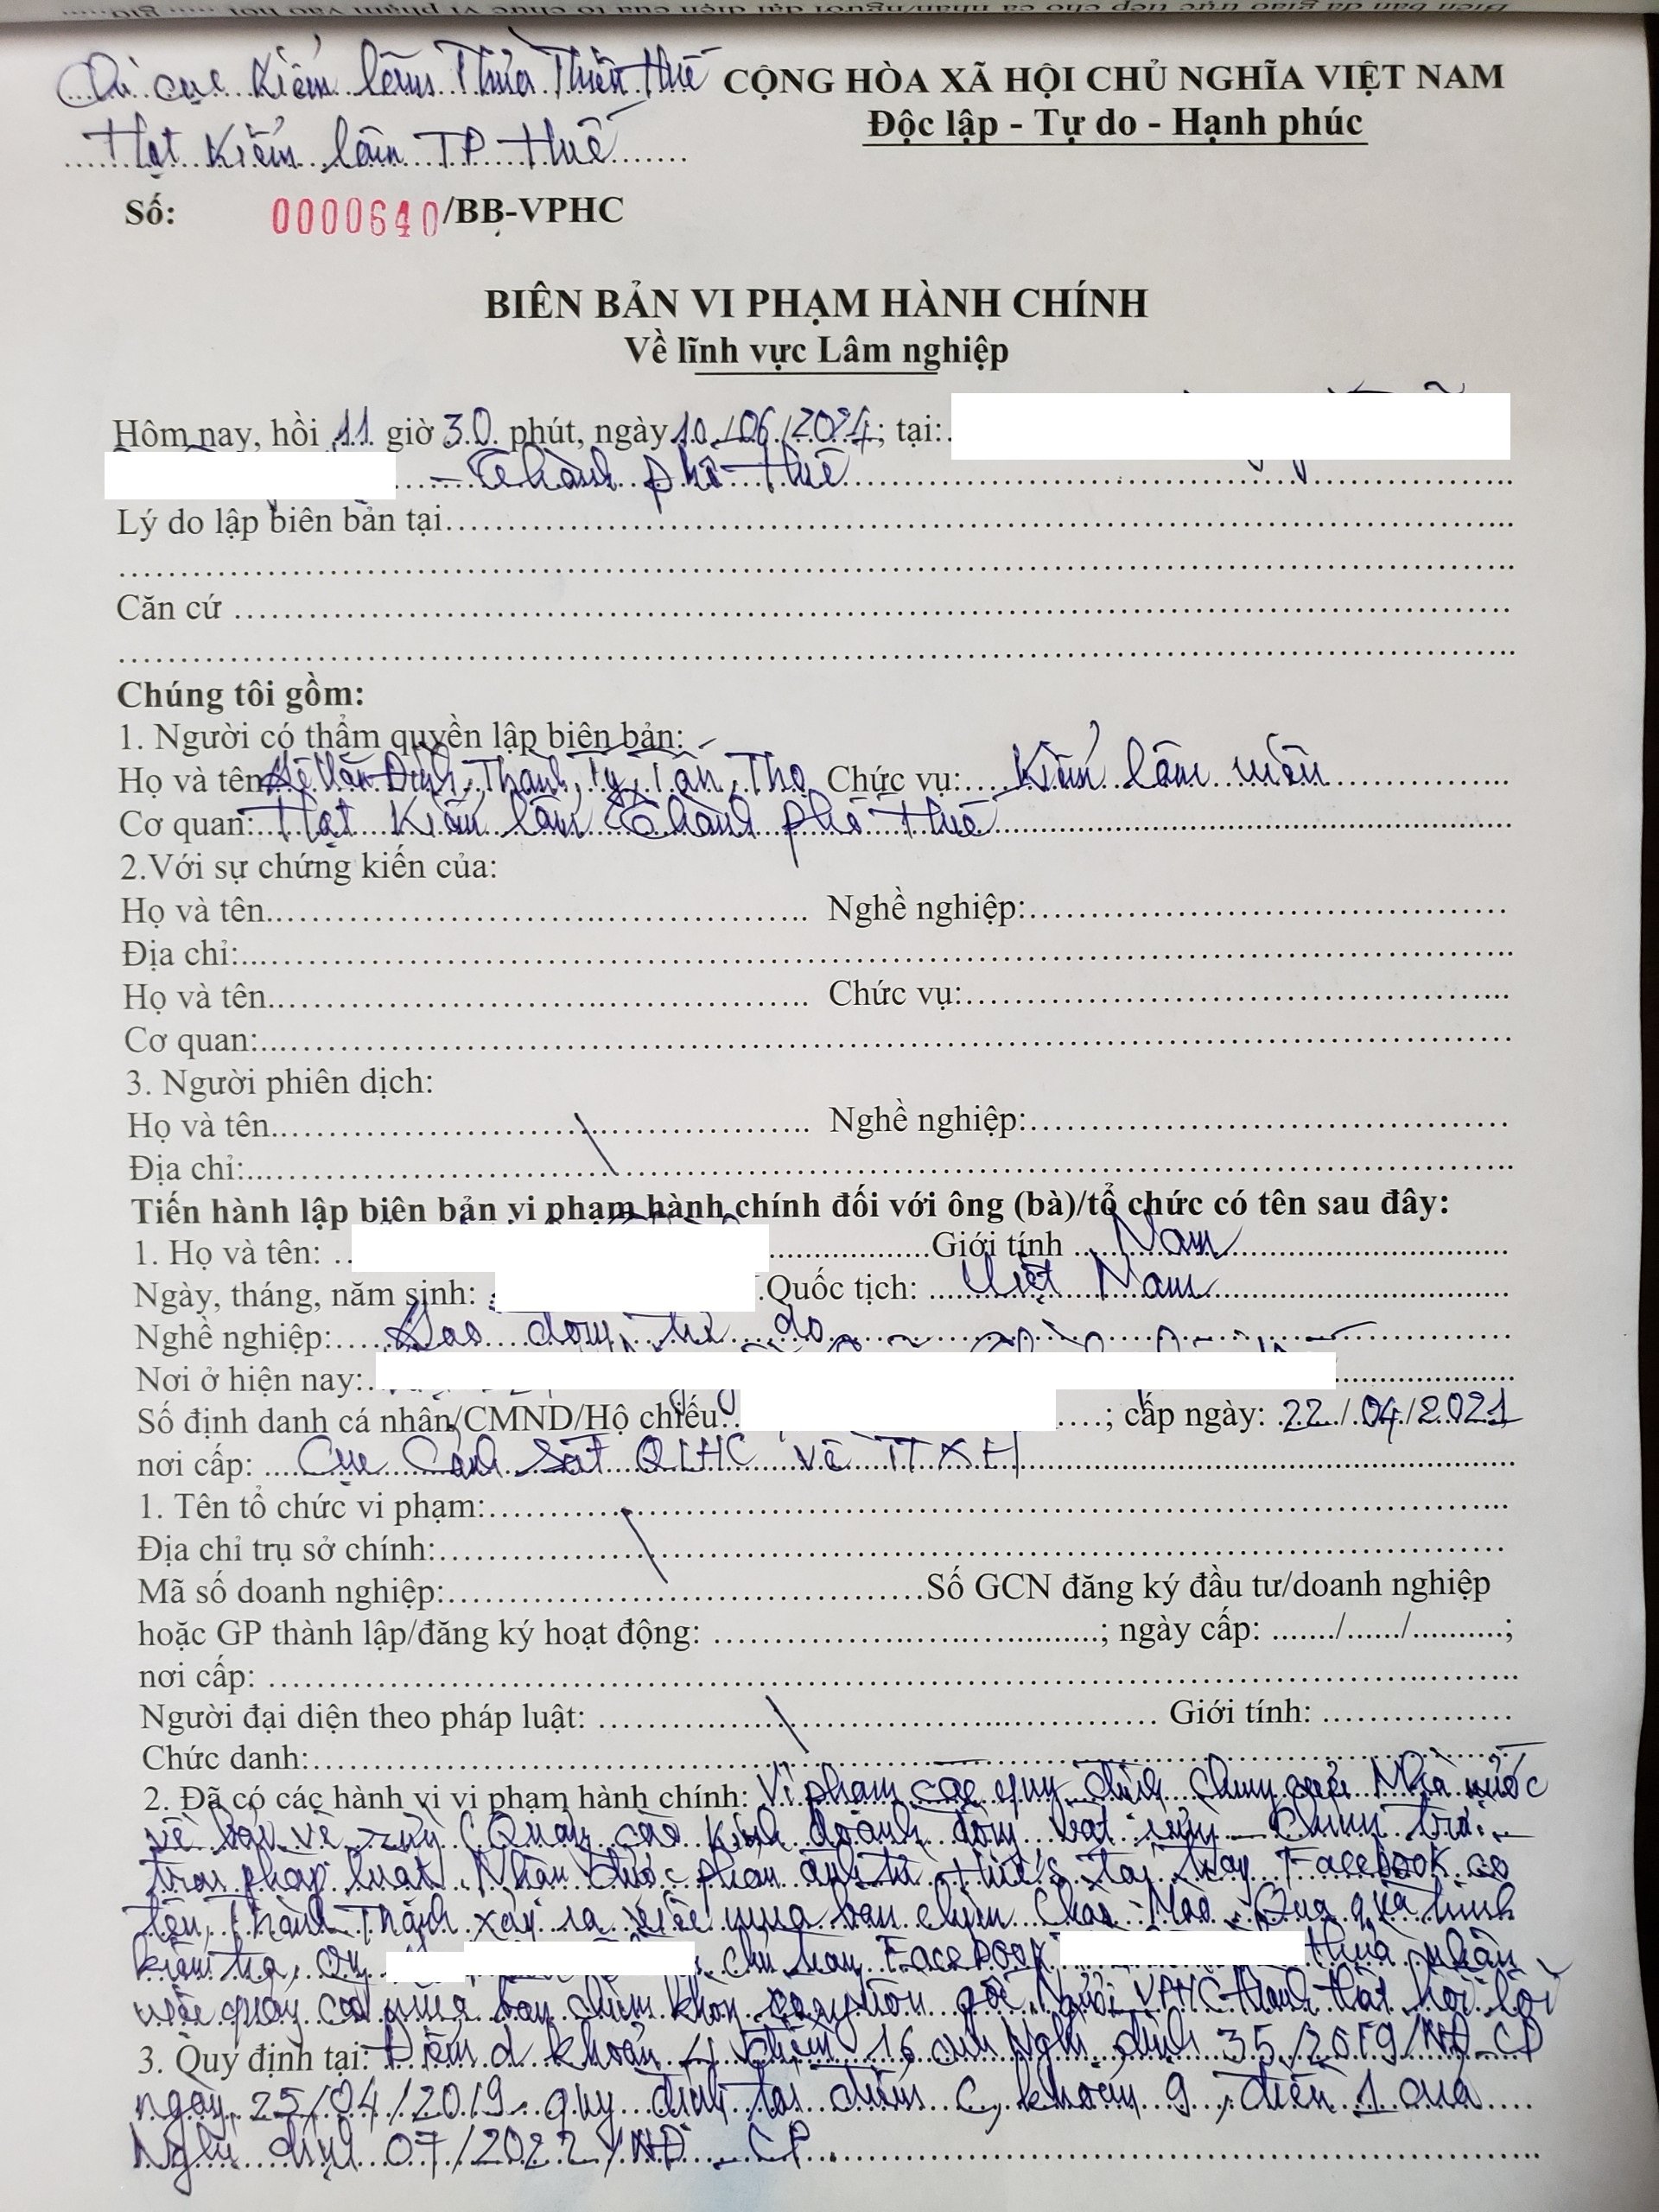 Chi cục Kiểm lâm Thừa Thiên Huế
CỘNG HÒA XÃ HỘI CHỦ NGHĨA VIỆT NAM
Hạt Kiểm lâm TP Huế
Độc lập - Tự do - Hạnh phúc
Số: 0000640/BB-VPHC
BIÊN BẢN VI PHẠM HÀNH CHÍNH
Về lĩnh vực Lâm nghiệp
Hôm nay, hồi 11 giờ 30 phút, ngày 10/06/2024; tại:
- Thành phố Huế
Lý do lập biên bản tại
Căn cứ
Chúng tôi gồm:
1. Người có thẩm quyền lập biên bản:
Họ và tên Lê Văn Định, Thành, Tý, Tấn, Thọ Chức vụ: Kiểm lâm viên
Cơ quan: Hạt Kiểm lâm Thành phố Huế
2.Với sự chứng kiến của:
Họ và tên Nghề nghiệp:
Địa chỉ:
Họ và tên Chức vụ:
Cơ quan:
3. Người phiên dịch:
Họ và tên Nghề nghiệp:
Địa chỉ:
Tiến hành lập biên bản vi phạm hành chính đối với ông (bà)/tổ chức có tên sau đây:
1. Họ và tên: Giới tính Nam
Ngày, tháng, năm sinh: Quốc tịch: Việt Nam
Nghề nghiệp: Lao động tự do
Nơi ở hiện nay:
Số định danh cá nhân/CMND/Hộ chiếu: ; cấp ngày: 22/04/2021
nơi cấp: Cục Cảnh sát QLHC về TTXH
1. Tên tổ chức vi phạm:
Địa chỉ trụ sở chính:
Mã số doanh nghiệp: Số GCN đăng ký đầu tư/doanh nghiệp
hoặc GP thành lập/đăng ký hoạt động: ; ngày cấp: / / ;
nơi cấp:
Người đại diện theo pháp luật: Giới tính:
Chức danh:
2. Đã có các hành vi vi phạm hành chính: Vi phạm các quy định chung của Nhà nước
về bảo vệ rừng (Quảng cáo kinh doanh động vật rừng
trái pháp luật. Nhận được phản ánh từ Hue's tại trang Facebook có
tên Thành Thành xảy ra việc mua bán chim Chào Mào. Qua quá trình
kiểm tra, ông chủ trang Facebook thừa nhận
việc quảng cáo mua bán chim không nguồn gốc. Người VPHC thành thật hối lỗi
3. Quy định tại: Điểm d khoản 4 điều 16 của Nghị định 35/2019/NĐ-CP
ngày 25/04/2019 quy định tại điểm c, khoản 9, điều 1 của
Nghị định 07/2022/NĐ-CP